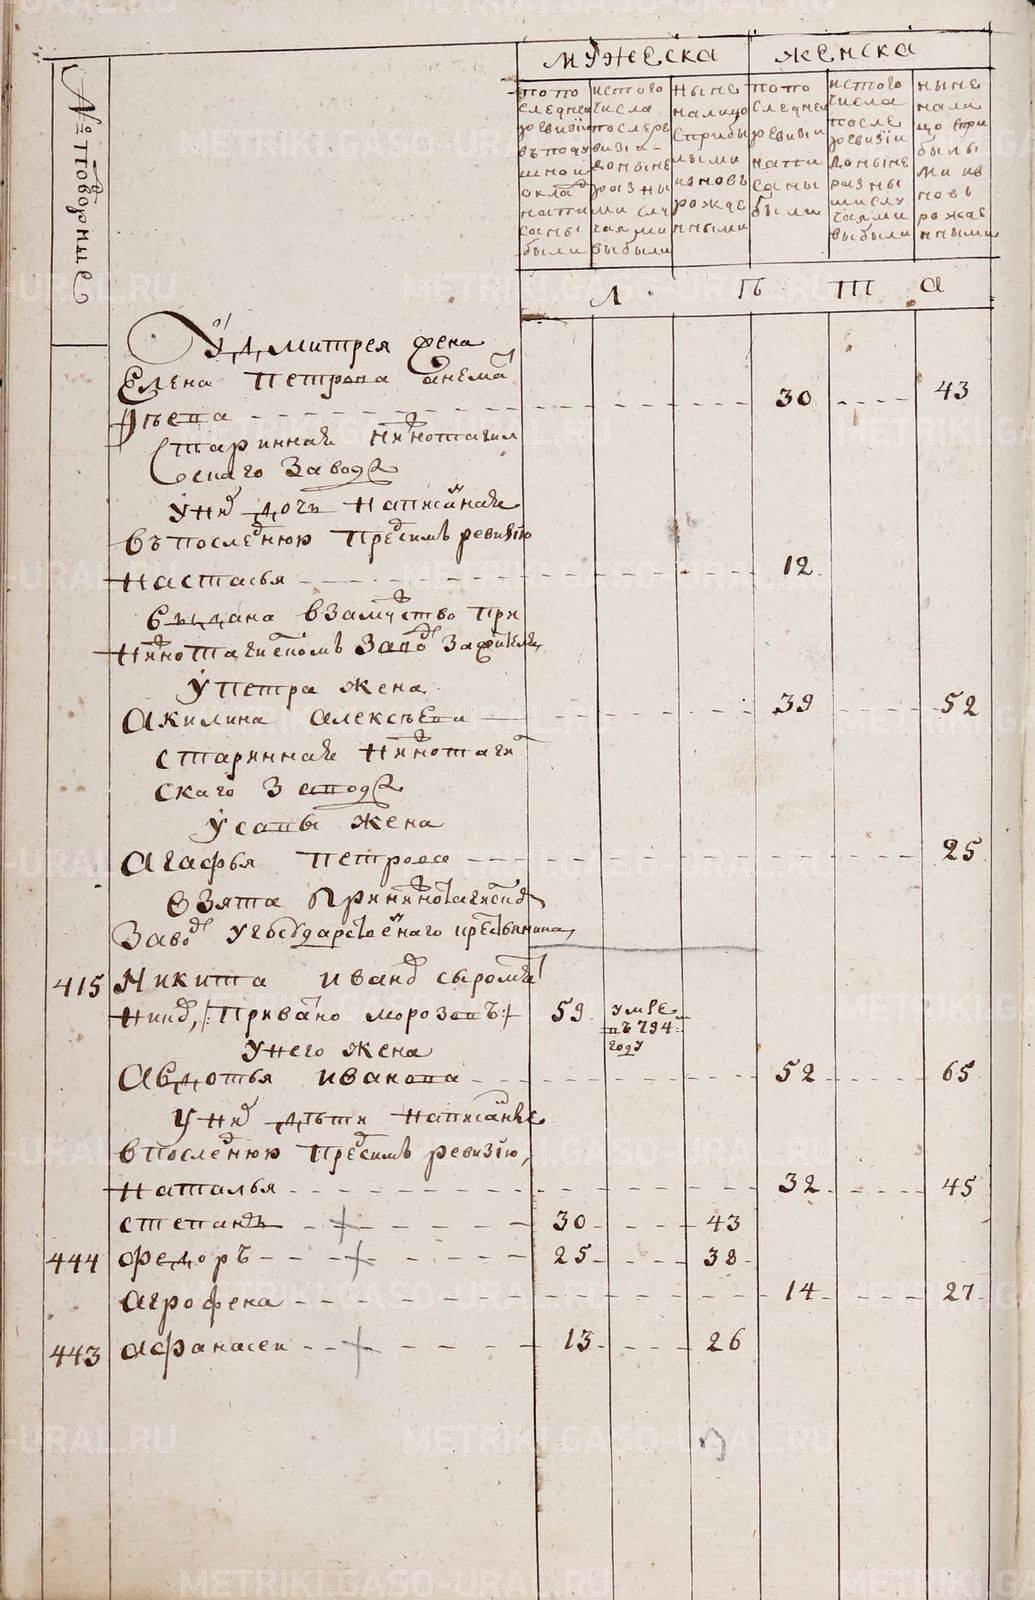 мужеска женска
№ дворные
по последней ревизии въ подушной окладъ написаны были
ис того числа после ревизии доныне разными случаями выбыли
ныне налицо с прибылыми и вновь рожденными
по последней ревизии написаны были
ис того числа после ревизии доныне разными случаями выбыли
ныне налицо с прибылыми и вновь рожденными
л ѣ т а
У дмитрея жена
Елена Петрова
30 43
старинная нижнотагил
скаго завода
у них дочь написанная
въ последнюю пред симъ ревизию
Настасья 12
выдана в замуство при
нижнотагилскомъ заводе
у петра жена
Акилина алексѣева 39 52
старинная нижнотаги
скаго завода
у савы жена
Агафья петрова 25
взята при нижнотагилском
заводе у государственнаго крестьянина
415 Никита иванов сыромят
ников /: прозвано морозовъ :/ 59 умре
въ 794
году
у него жена
Авдотья иванова 52 65
у них дѣти написанные
в последнюю пред симъ ревизию,
Наталья 32 45
степанъ 30 43
444 федоръ 25 38
агрофена 14 27
443 афанасеи 13 26
METRIKI.GASO-URAL.RU